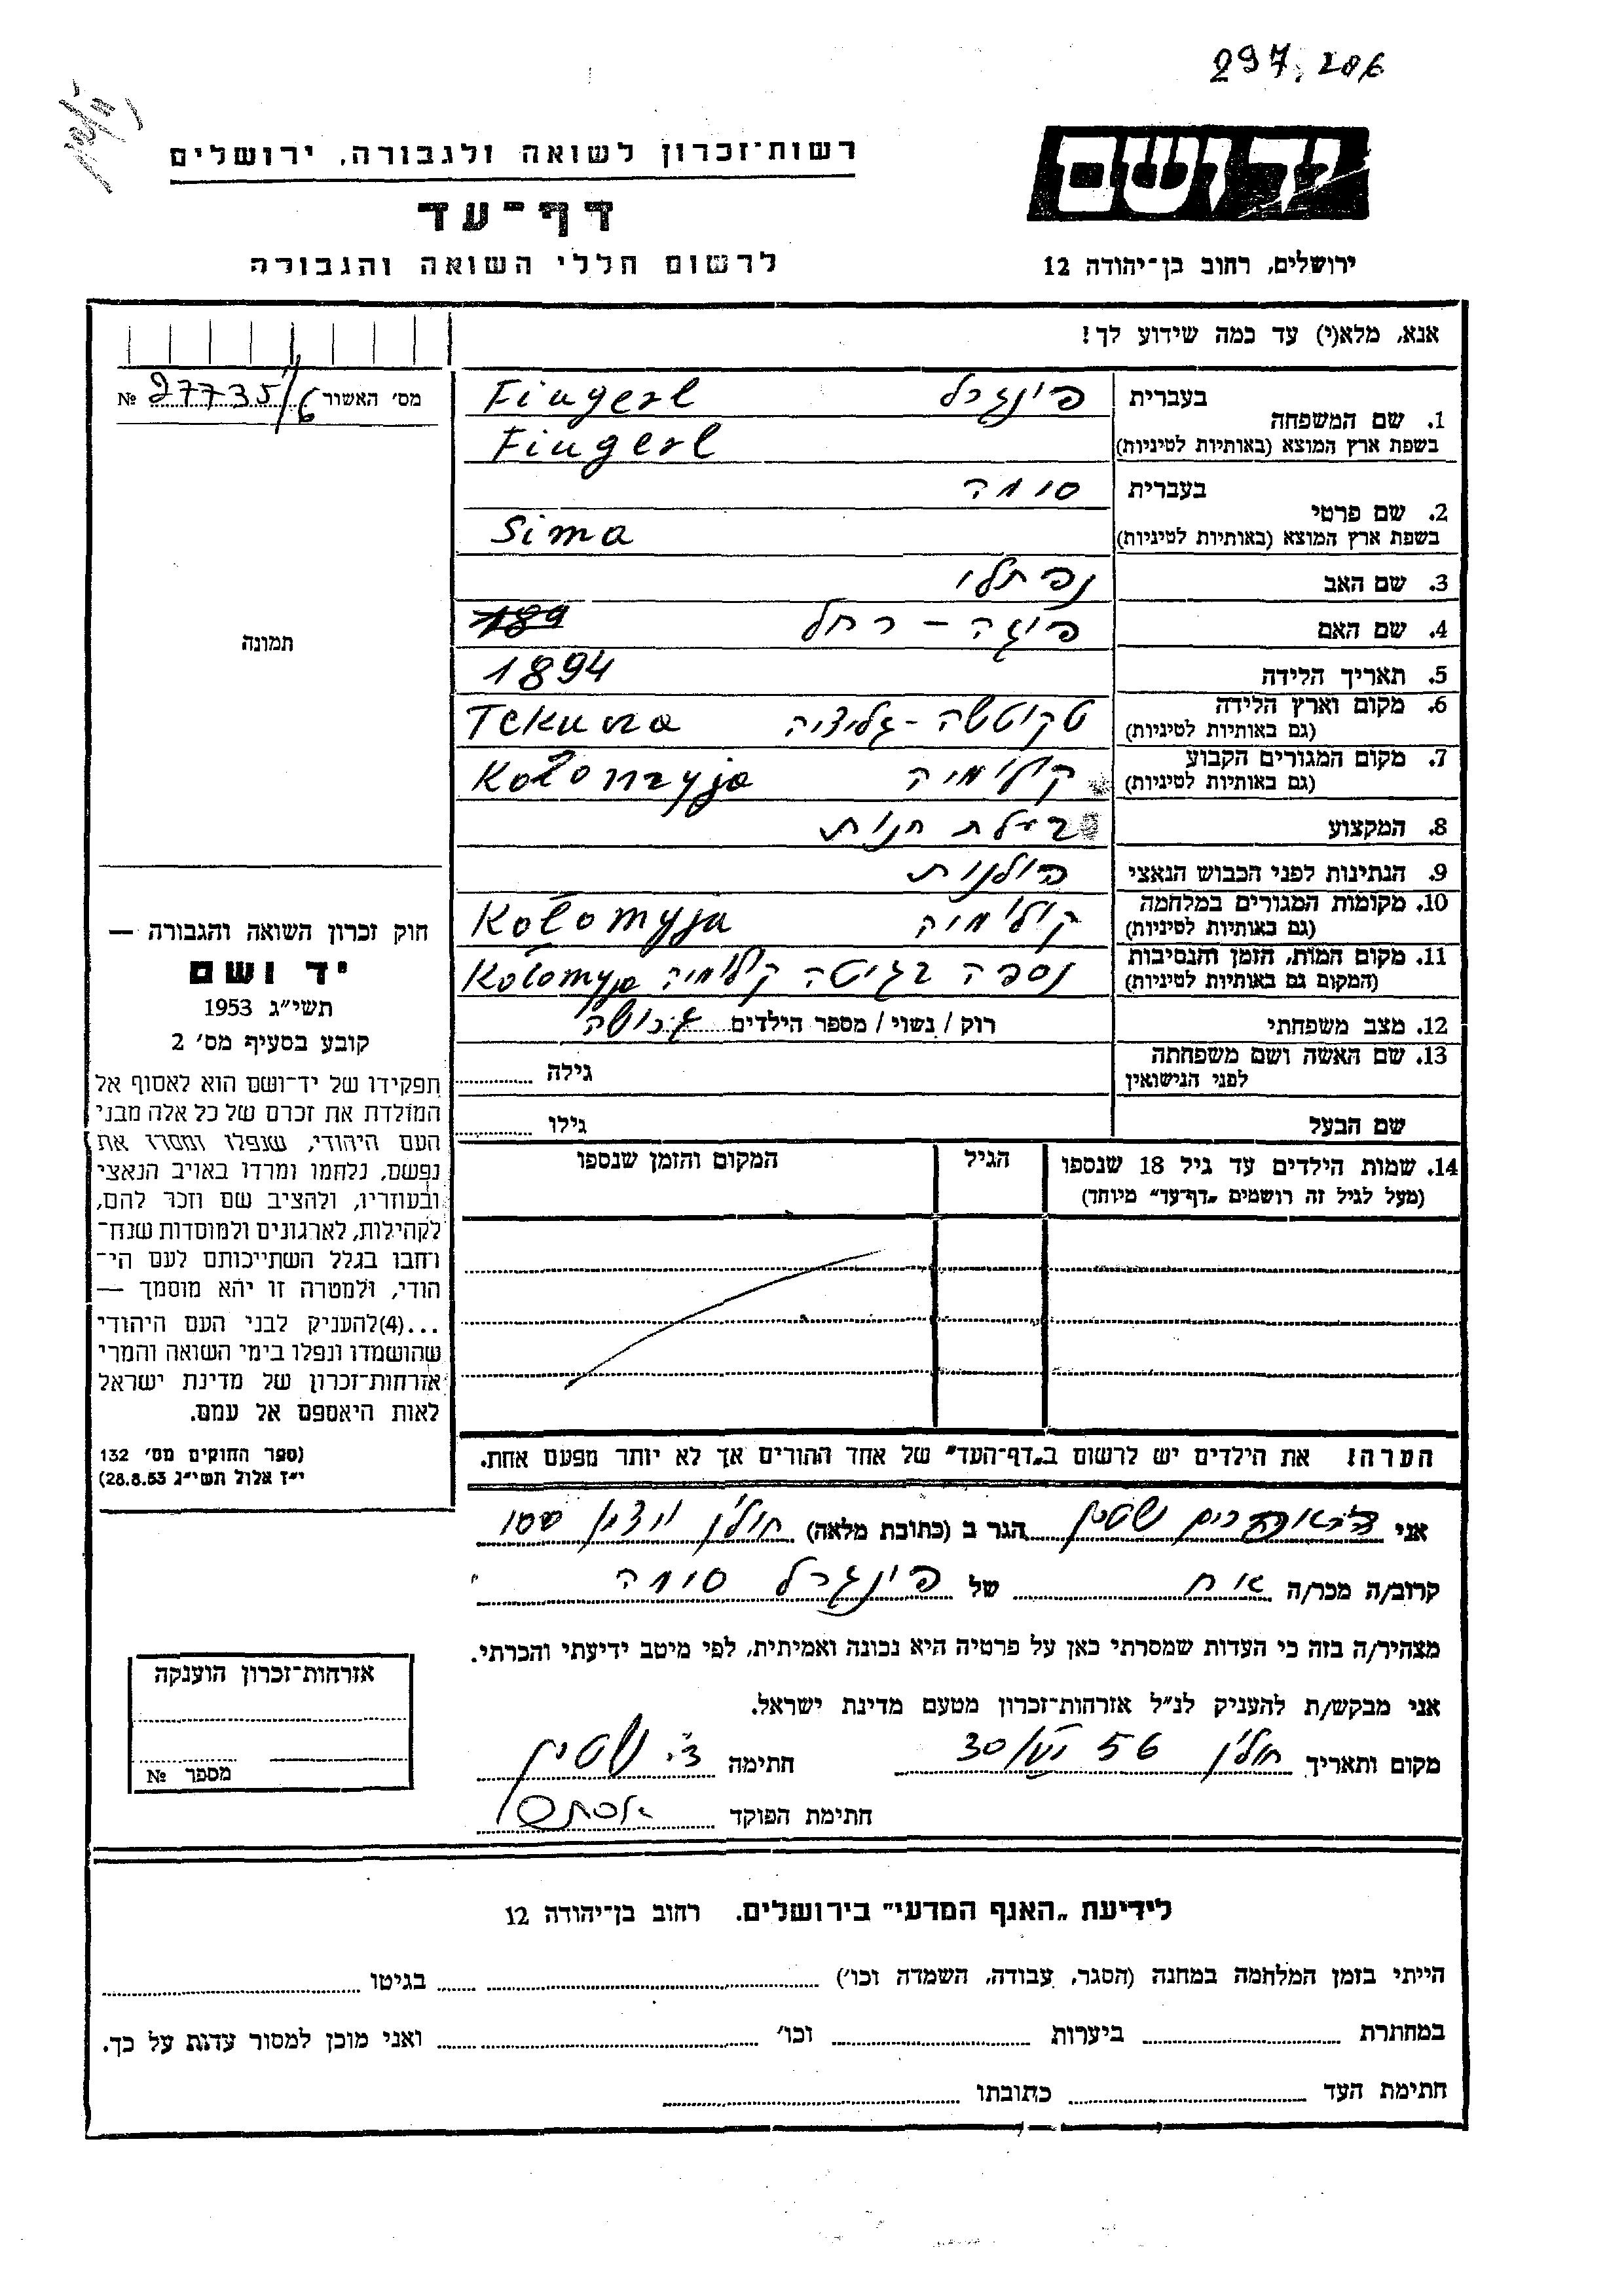 297,206
יד ושם
רשות־זכרון לשואה ולגבורה, ירושלים
דף־עד
לרשום חללי השואה והגבורה
ירושלים, רחוב בן־יהודה 12
אנא, מלא(י) עד כמה שידוע לך!
מס׳ האשור 27735/6 №
תמונה
1. שם המשפחה
בעברית פינגרל Fingerl
בשפת ארץ המוצא (באותיות לטיניות) Fingerl
2. שם פרטי
בעברית סימה
בשפת ארץ המוצא (באותיות לטיניות) Sima
3. שם האב נפתלי
4. שם האם פיגה - רחל 189
5. תאריך הלידה 1894
6. מקום וארץ הלידה
(גם באותיות לטיניות) גליציה
7. מקום המגורים הקבוע
(גם באותיות לטיניות) קולומיה Kołomyja
8. המקצוע בעלת חנות
9. הנתינות לפני הכבוש הנאצי פולנית
10. מקומות המגורים במלחמה
(גם באותיות לטיניות) קולומיה Kołomyja
11. מקום המות, הזמן והנסיבות
(המקום גם באותיות לטיניות) נספה בגיטה קולומיה Kołomyja
12. מצב משפחתי רוק / נשוי / מספר הילדים גרושה
13. שם האשה ושם משפחתה
לפני הנישואין גילה
שם הבעל גילו
14. שמות הילדים עד גיל 18 שנספו
(מעל לגיל זה רושמים „דף־עד״ מיוחד)
הגיל
המקום והזמן שנספו
חוק זכרון השואה והגבורה —
יד ושם
תשי״ג 1953
קובע בסעיף מס׳ 2
תפקידו של יד־ושם הוא לאסוף אל
המולדת את זכרם של כל אלה מבני
העם היהודי, שנפלו ומסרו את
נפשם, נלחמו ומרדו באויב הנאצי
ובעוזריו, ולהציב שם וזכר להם,
לקהילות, לארגונים ולמוסדות שנח־
רחבו בגלל השתייכותם לעם הי־
הודי, ולמטרה זו יהא מוסמך —
...(4)להעניק לבני העם היהודי
שהושמדו ונפלו בימי השואה והמרי
אזרחות־זכרון של מדינת ישראל
לאות היאספם אל עמם.
(ספר החוקים מס׳ 132
י״ז אלול תשי״ג 28.8.53)
הערה! את הילדים יש לרשום ב„דף־העד״ של אחד ההורים אך לא יותר מפעם אחת.
אני הגר ב (כתובת מלאה) חולון
קרוב/ה מכר/ה אח של פינגרל סימה
מצהיר/ה בזה כי העדות שמסרתי כאן על פרטיה היא נכונה ואמיתית, לפי מיטב ידיעתי והכרתי.
אני מבקש/ת להעניק לנ״ל אזרחות־זכרון מטעם מדינת ישראל.
מקום ותאריך חולון 56 30 חתימה
חתימת הפוקד
אזרחות־זכרון הוענקה
מספר №
לידיעת „האגף המדעי״ בירושלים. רחוב בן־יהודה 12
הייתי בזמן המלחמה במחנה (הסגר, עבודה, השמדה וכו׳) בגיטו
במחתרת ביערות וכו׳ ואני מוכן למסור עדות על כך.
חתימת העד כתובתו